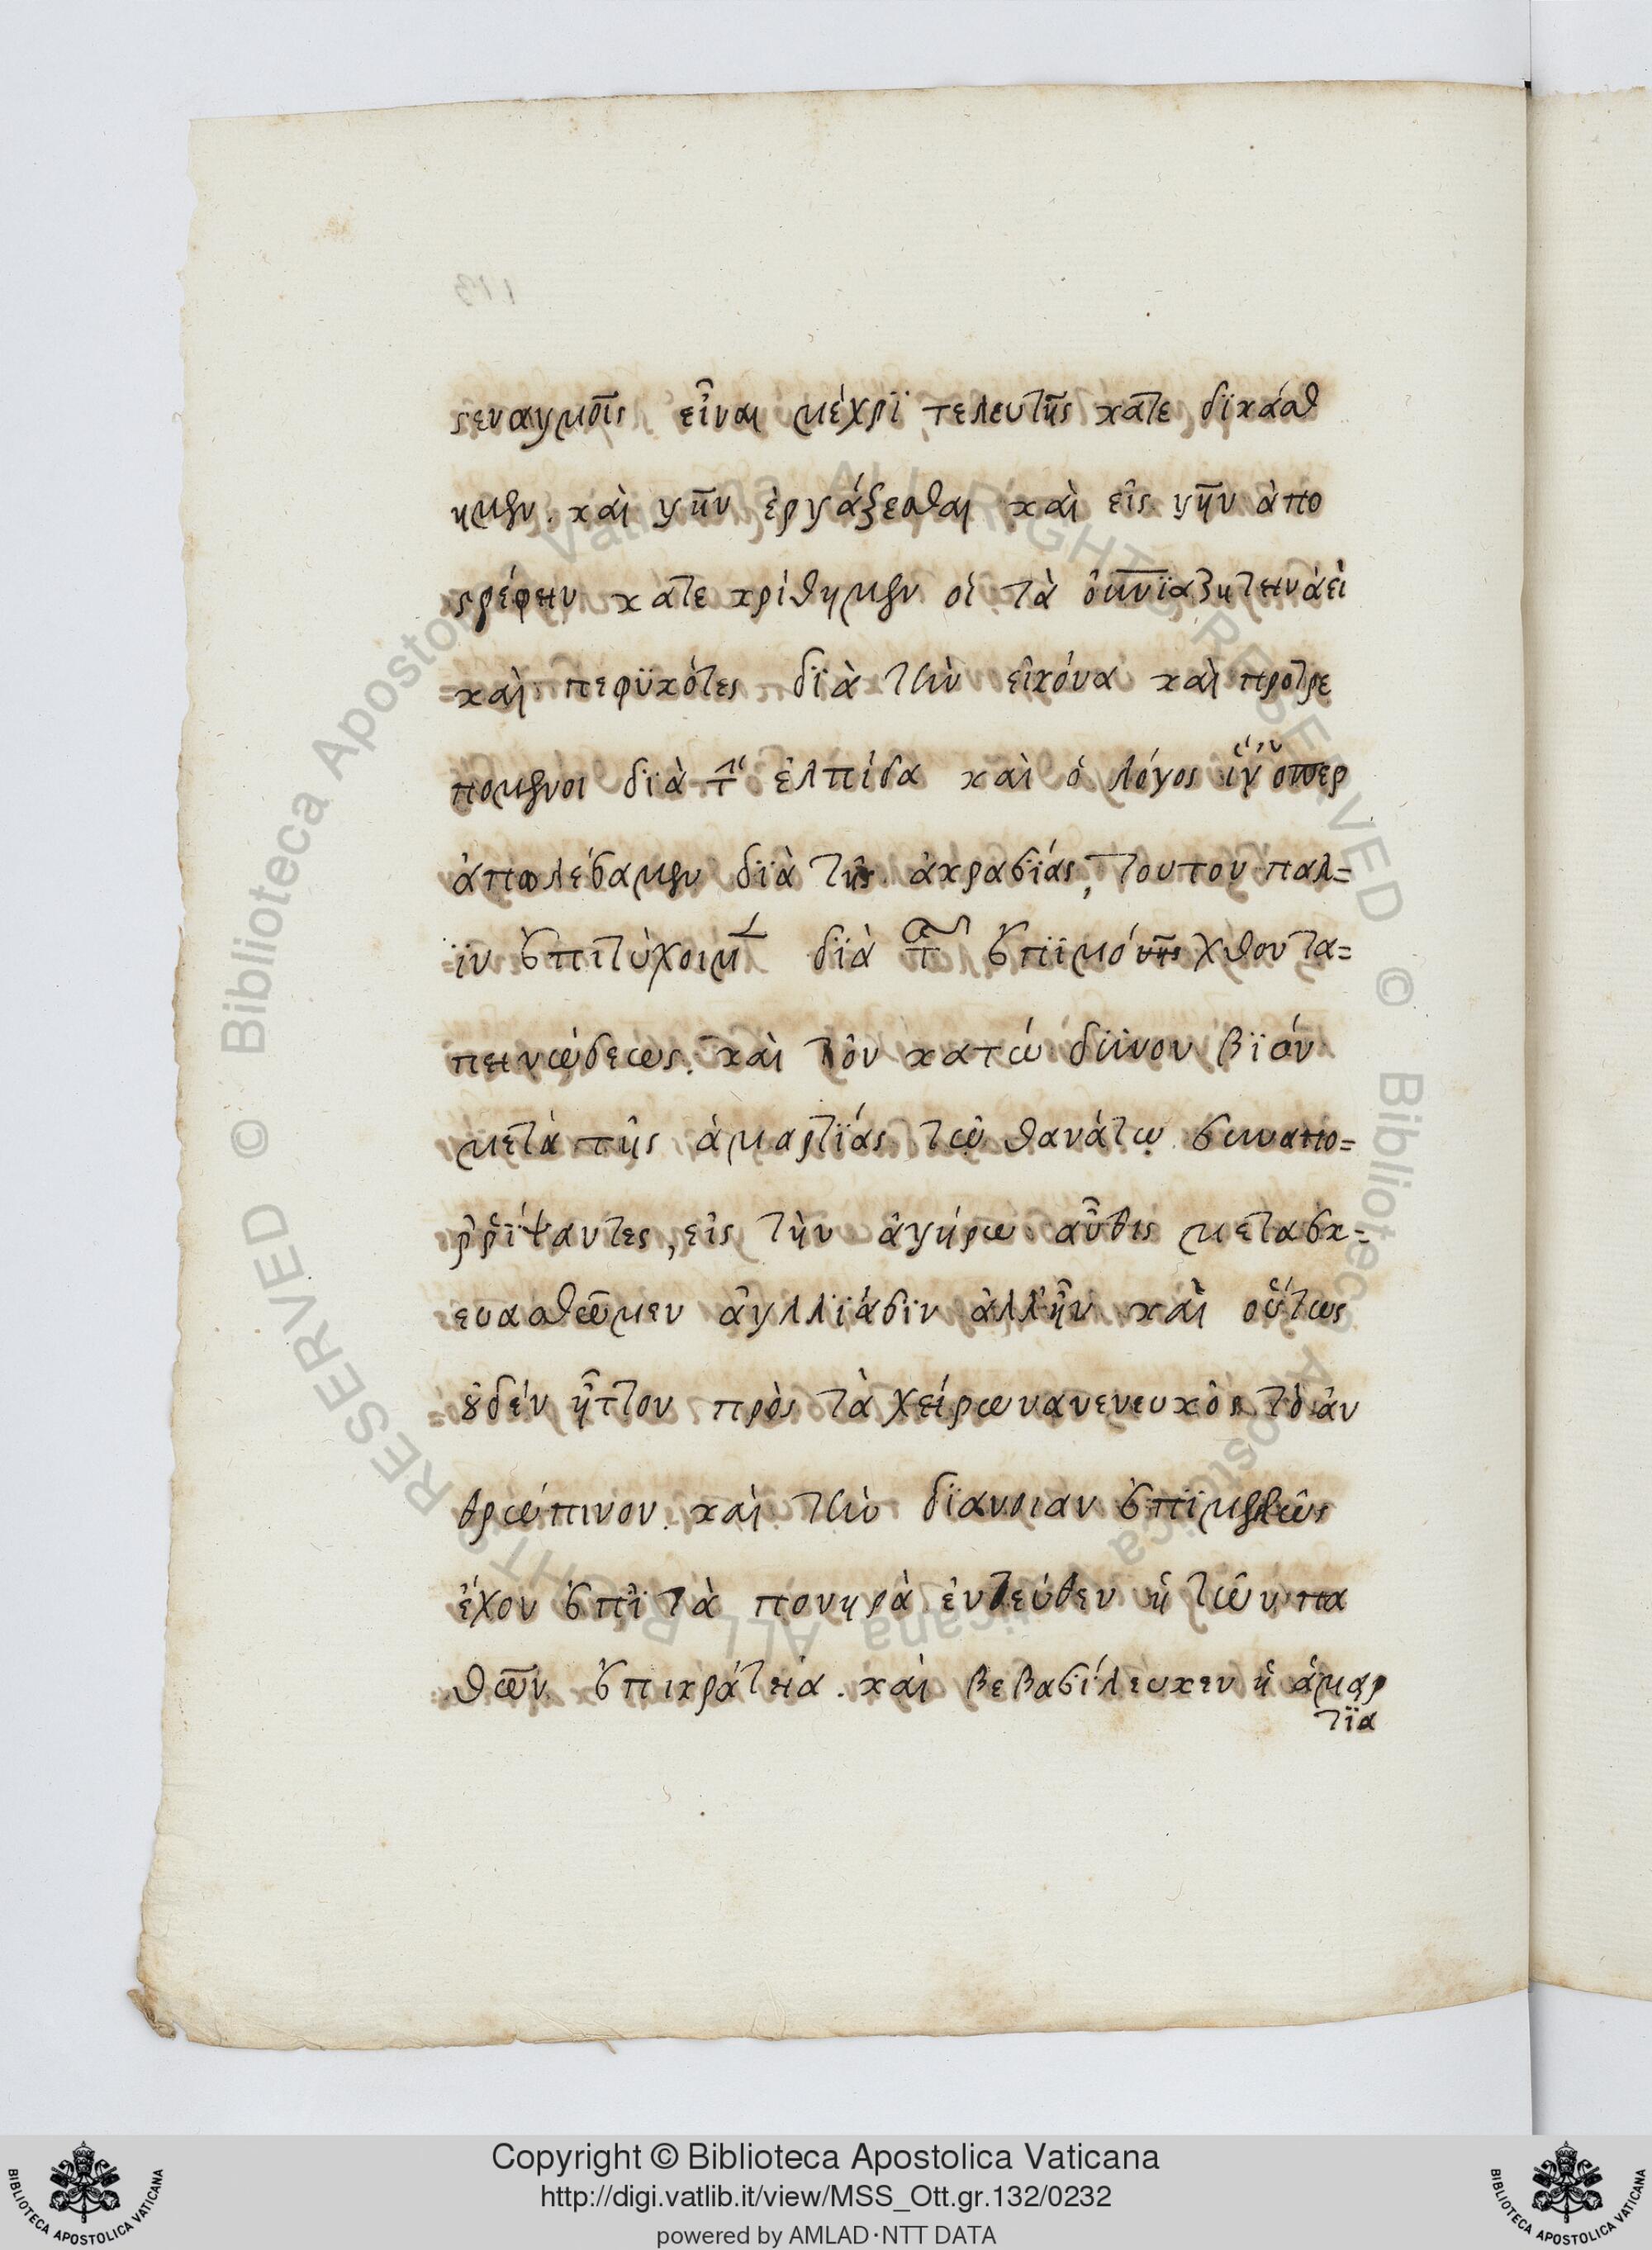 στεναγμοῖς εἶναι μέχρϊ τελευτῆς κατε δϊκάσθ
ημεν. καὶ γῆν ἐργάξεσθαι καὶ εἰς γῆν ἀπο
στρέφειν κατε κρίθημεν οἱ τὰ
καὶ πεφϋκότες δϊὰ τὴν εἰκόνα καὶ προτρε
πομενοι δϊὰ τ ἐλπίδα καὶ ὁ λόγος ἵν ὅπερ
ἀπολέσαμεν δϊὰ τῆς ἀκρασϊάς, τουτου παλ=
ϊν ἐπιτύχοιμ δϊὰ τ ἐπϊμόνης χθου τα=
πεινώσεως. καὶ τὸν κατώ δύνον βϊόν
μετὰ τῆς ἁμαρτϊάς τῷ θανάτῳ συναπο=
ῤῥΐψαντες, εἰς τὴν ἀγήρω αὖθις μετασκ=
ευασθῶμεν ἀγλλϊάσϊν ἀλλ' ἦν καὶ οὕτως
οὐδέν ἧττον πρὸς τὰ χείρω νανενευκὸς τὸ ἀν
θρώπινον. καὶ τὴν δϊανοιαν ἐπϊμελῶς
ἔχον ἐπῒ τὰ πονηρὰ ἐντεύθεν ἡ τῶν πα
θῶν ἐπικράτεια. καὶ βεβασϊλευκεν ἡ ἁμαρ
τϊα
Copyright © Biblioteca Apostolica Vaticana
http://digi.vatlib.it/view/MSS_Ott.gr.132/0232
powered by AMLAD·NTT DATA
BIBLIOTECA APOSTOLICA VATICANA
BIBLIOTECA APOSTOLICA VATICANA